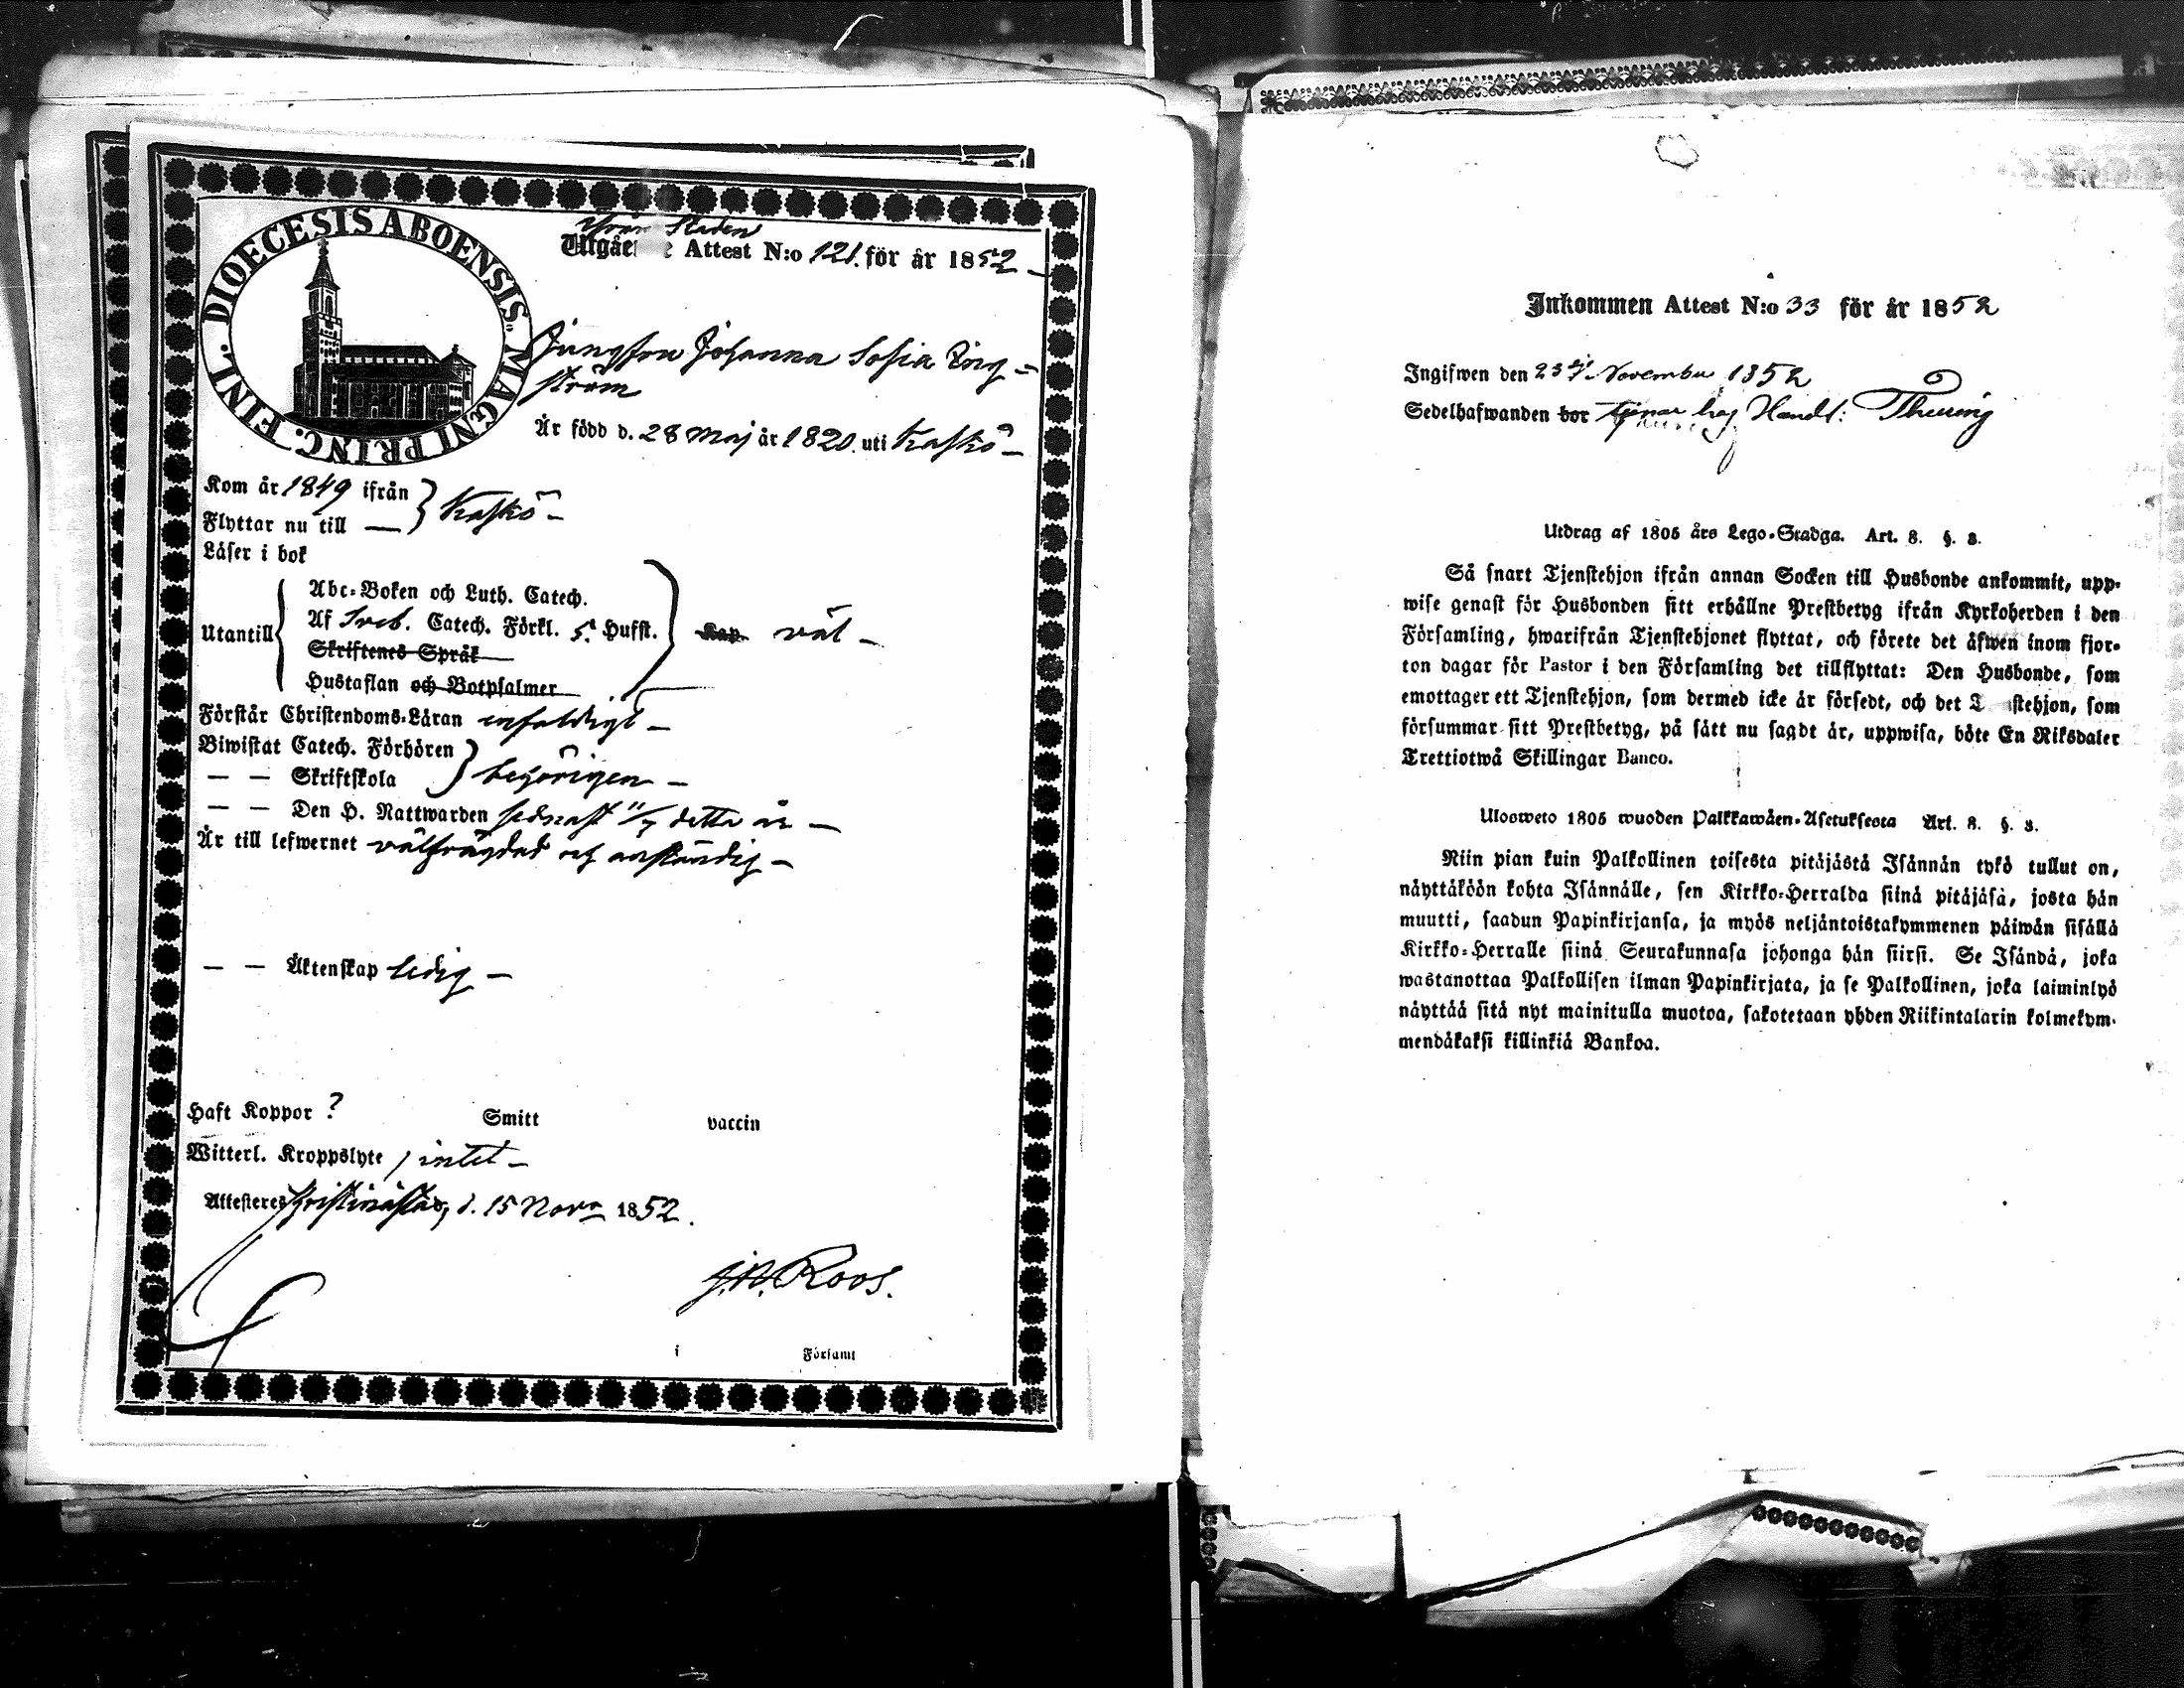 DIOECESIS ABOENSIS MAGNI PRINC. FINL.
ifrån Staden
Utgåe e Attest N:o 121. för år 1852
Jungfru Johanna Sofia Eng-
ström
Är född d. 28 Maj år 1820. uti Kaskö
Kom år 1849 ifrån } Kaskö
Flyttar nu till —
Läser i bok
Utantill
Abc-Boken och Luth. Catech.
Af Sveb. Catech. Förkl. 5. Hufst. Kap. väl
Skriftenes Språk
Hustaflan och Botpsalmer
Förstår Christendoms-Läran enfaldigt
Biwistat Catech. Förhören } behörigen
— — Skriftskola
— — Den H. Nattwarden sednast 11/7 detta år
Är till lefwernet välfrägdad och anständig
— — Äktenskap ledig
Haft Koppor ? Smitt vaccin
Witterl. Kroppslyte intet
Attesteres Kristinæstad, d. 15 Nov 1852.
Roos.
i Församl
Inkommen Attest N:o 33 för år 1852
Ingifwen den 23 November 1852
Sedelhafwanden bor tjenar hos Handl: Thuring
Utdrag af 1805 års Lego-Stadga. Art. 8. §. 3.
Så snart Tjenstehjon ifrån annan Socken till Husbonde ankommit, upp-
wise genast för Husbonden sitt erhållne Prestbetyg ifrån Kyrkoherden i den
Församling, hwarifrån Tjenstehjonet flyttat, och förete det äfwen inom fjor-
ton dagar för Pastor i den Församling det tillflyttat: Den Husbonde, som
emottager ett Tjenstehjon, som dermed icke är försedt, och det T stehjon, som
försummar sitt Prestbetyg, på sätt nu sagdt är, uppwisa, böte En Riksdaler
Trettiotwå Skillingar Banco.
Ulosweto 1805 wuoden Palkkawäen-Asetuksesta Art. 8. §. 3.
Niin pian kuin Palkollinen toisesta pitäjästä Isännän tykö tullut on,
näyttäköön kohta Isännälle, sen Kirkko-Herralda siinä pitäjäsä, josta hän
muutti, saadun Papinkirjansa, ja myös neljäntoistakymmenen päiwän sisällä
Kirkko-Herralle siinä Seurakunnasa johonga hän siirsi. Se Isändä, joka
wastanottaa Palkollisen ilman Papinkirjata, ja se Palkollinen, joka laiminlyö
näyttää sitä nyt mainitulla muotoa, sakotetaan yhden Riikintalarin kolmekym-
mendäkaksi killinkiä Bankoa.